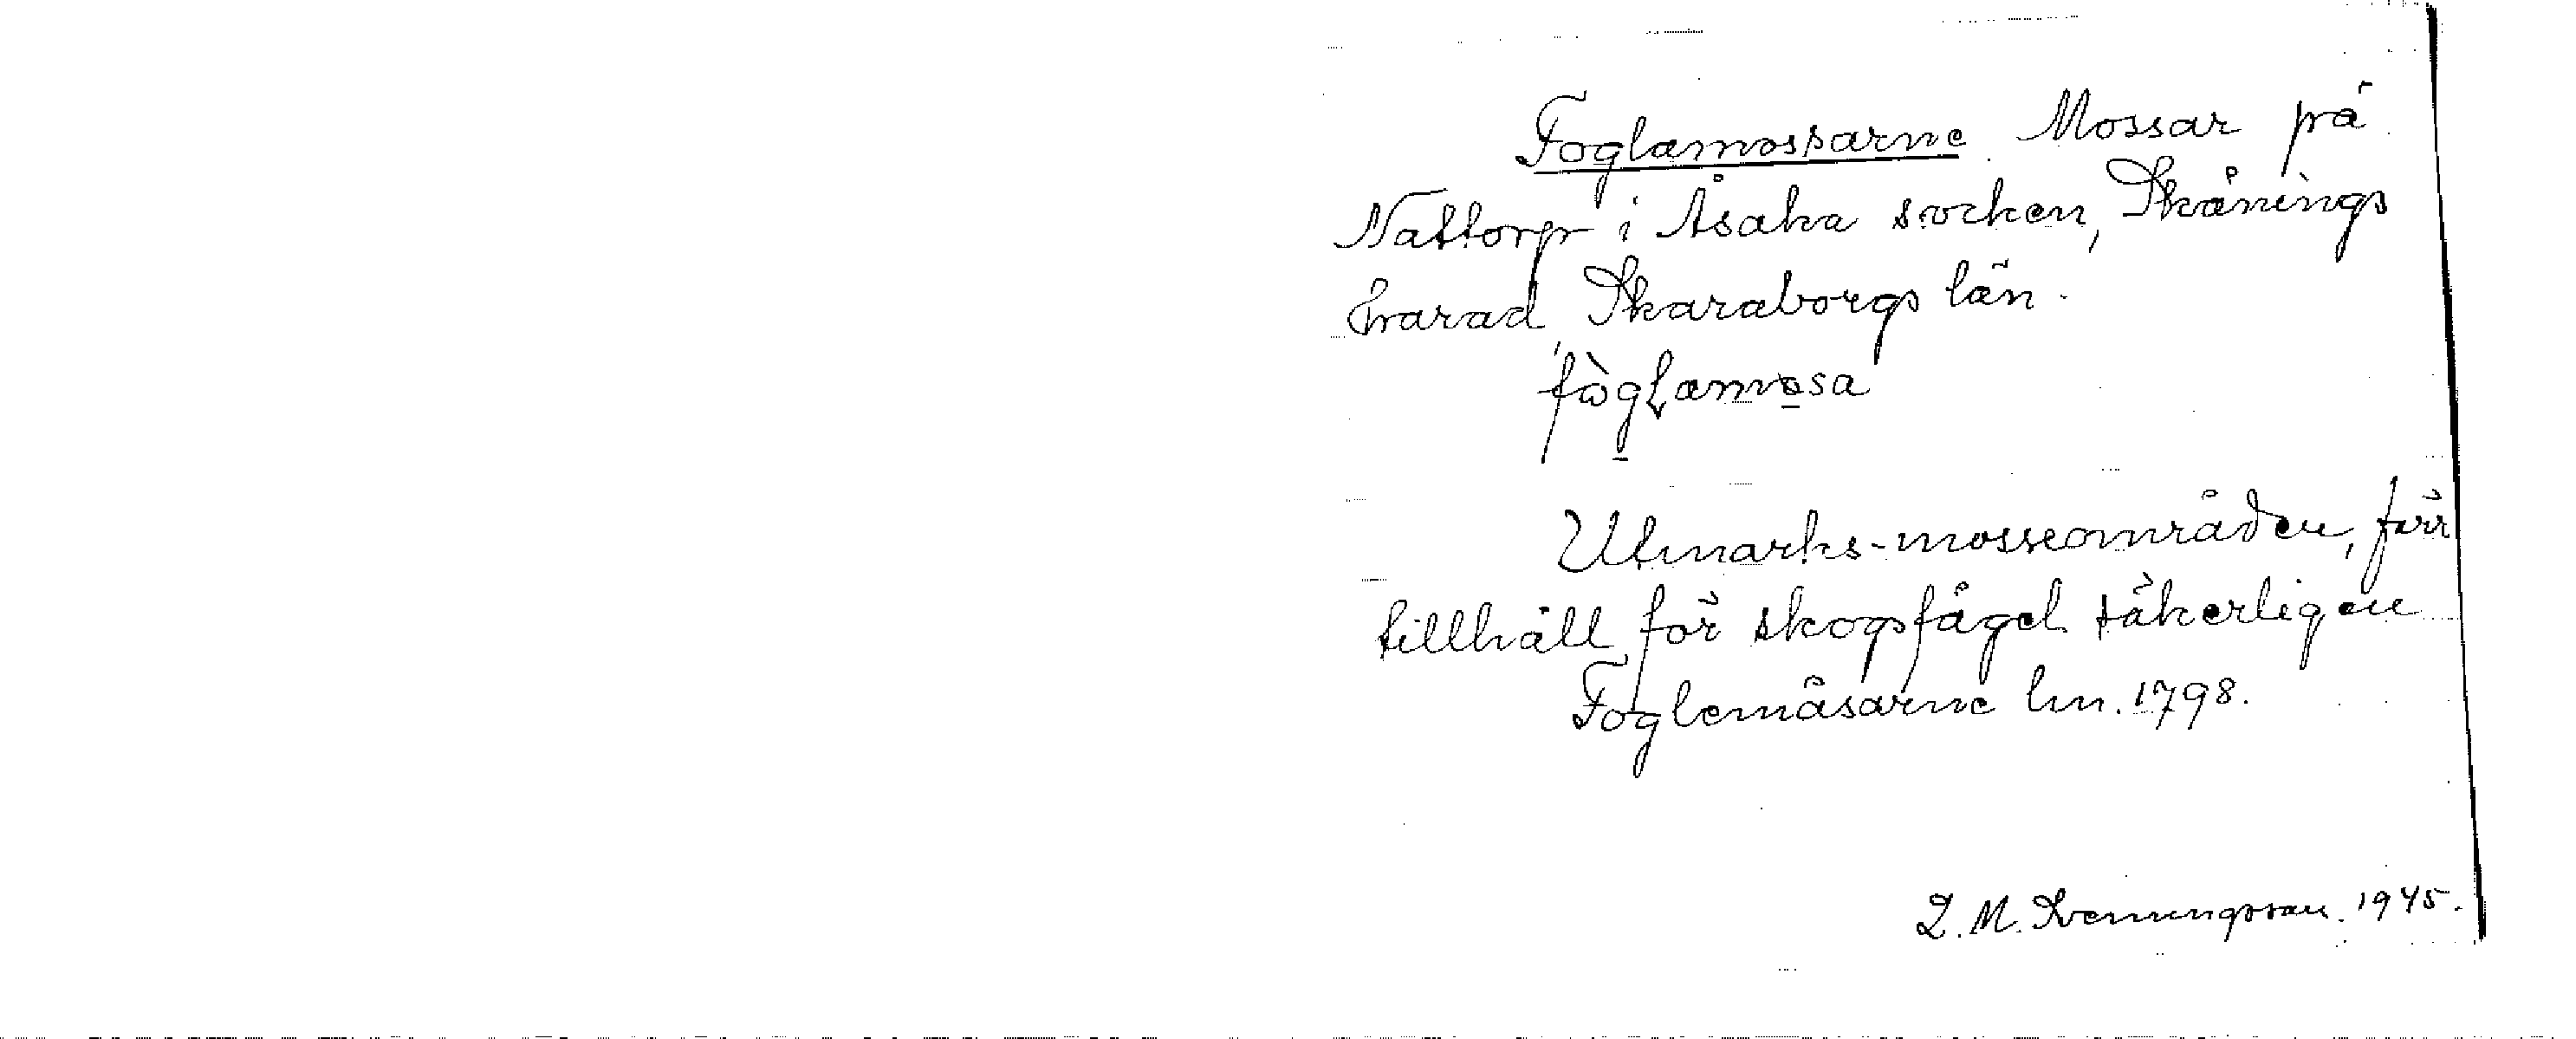 Foglamossarne. Mossar på
Nattorp i Åsaka socken, Skånings
härad Skaraborgs län.
fòglamosa
Utmarks-mosseområden, förr
tillhåll för skogsfågel säkerligen
Foglemåsarne lm. 1798.
L. M. Svenungsson. 1945.